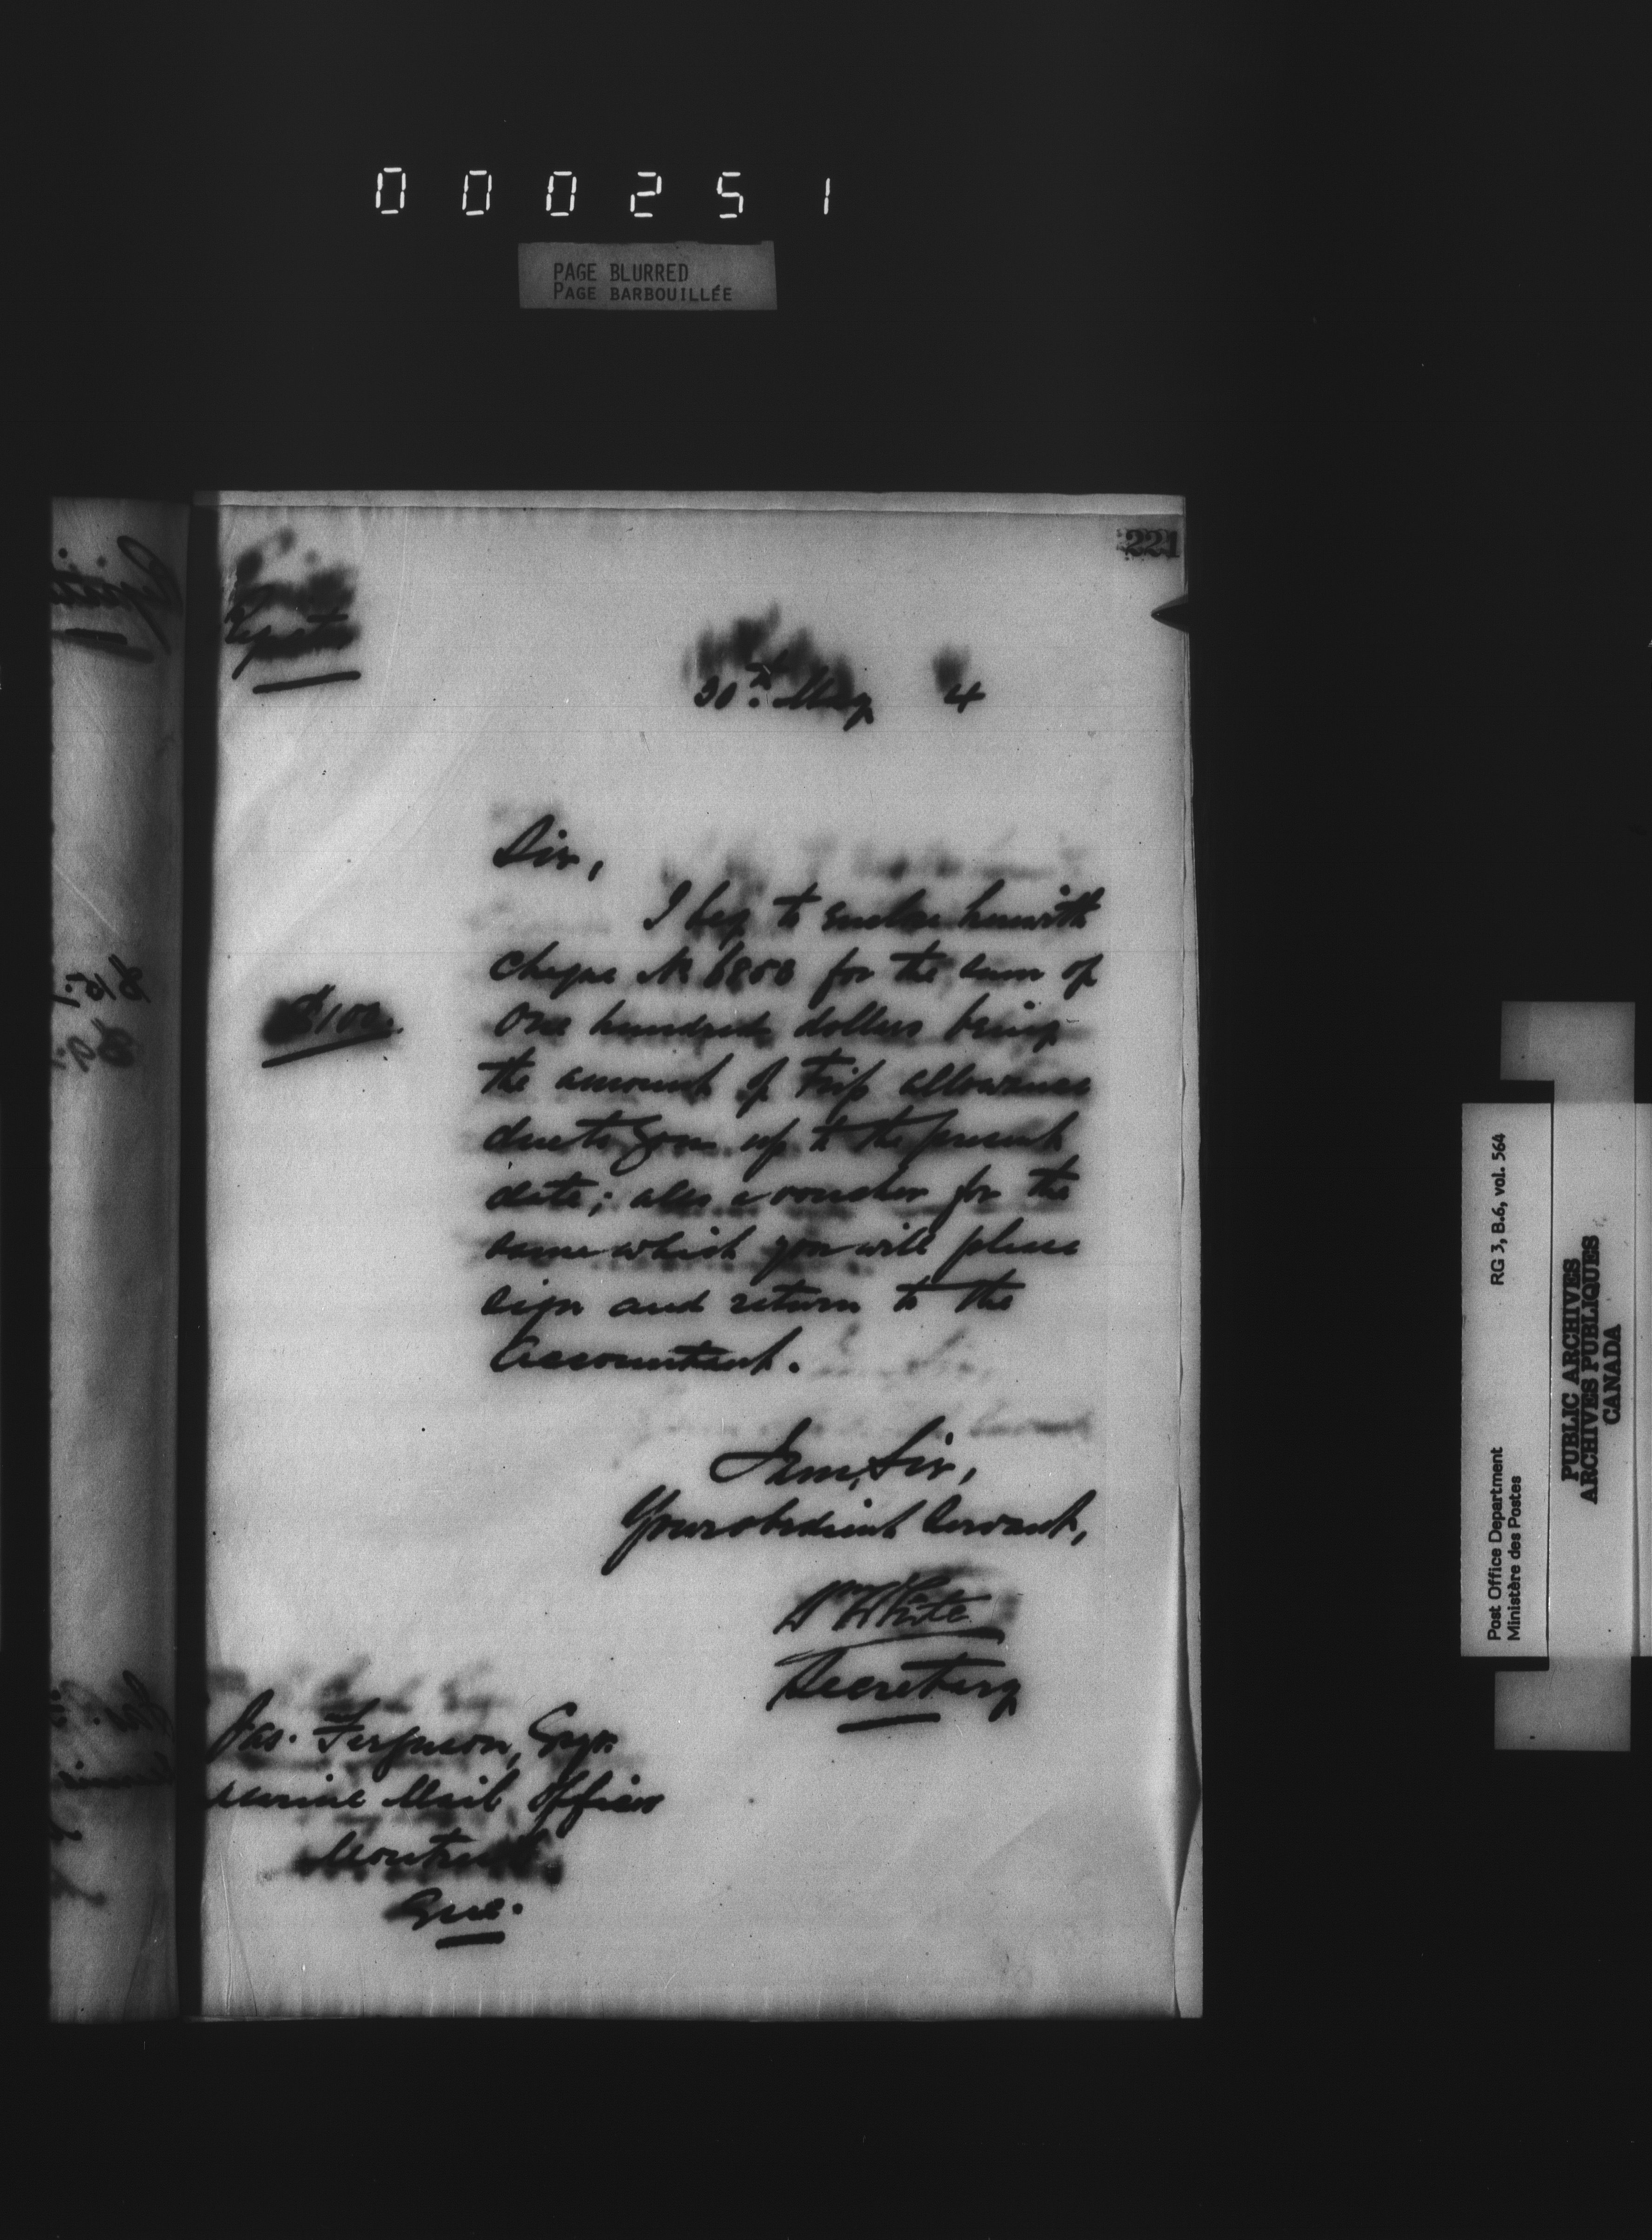 000251
PAGE BLURRED
PAGE BARBOUILLÉE
221
30th May 4
Sir,
I beg to enclose herewith
cheque No 6858 for the sum of
$100.
One hundred dollars being
the amount of Trip allowance
due to you up to the present
date; also a voucher for the
same which you will please
sign and return to the
Accountant.
I am, Sir,
Your obedient Servant,
Wm White
Secretary
Jas. Ferguson, Esqr.
Marine Mail Officer
Montreal.
Que.
Post Office Department RG 3, B.6, vol. 564
Ministère des Postes
PUBLIC ARCHIVES
ARCHIVES PUBLIQUES
CANADA